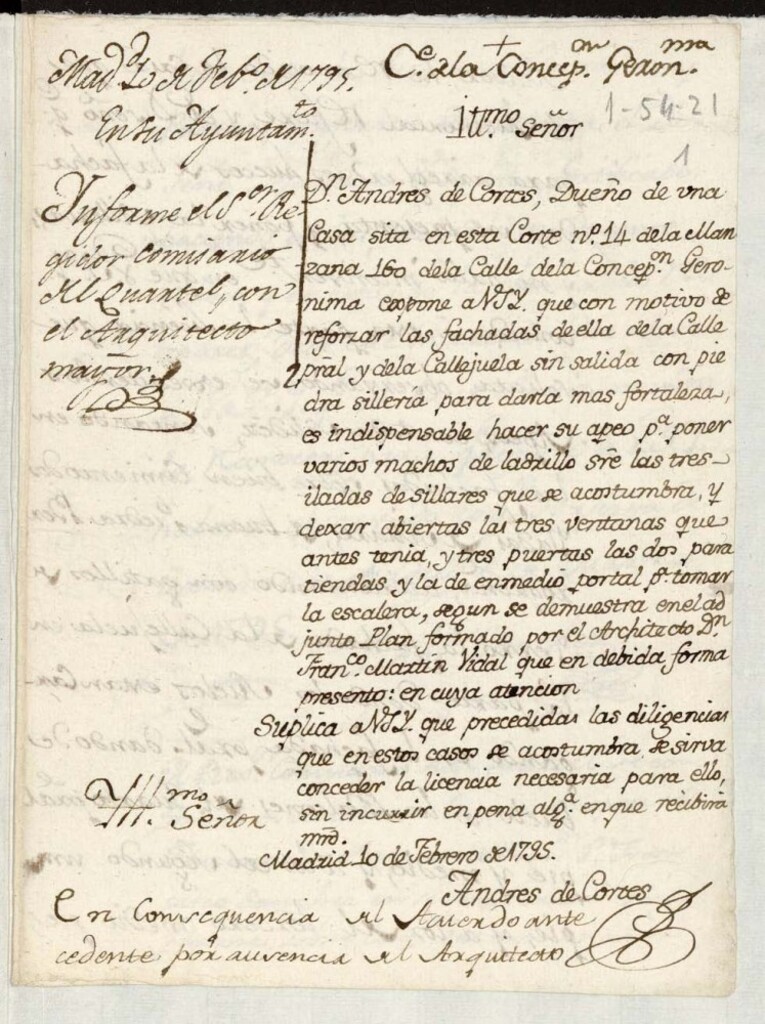 Mad.d 10 de Feb.o de 1795.
En su Ayuntam.to
Ynforme el S.or Re-
gidor comisario
del Quartel, con
el Arquitecto
mayor.
C.e de la Concep.on Geron.ma
1-54-21
1
Ill.mo Señor
D.n Andres de Cortes, Dueño de una
Casa sita en esta Corte nº. 14 de la Man
zana 160 de la Calle de la Concep.on Gero-
nima expone a VSY. que con motivo de
reforzar las fachadas de ella de la Calle
pral y de la Callejuela sin salida con pie
dra sillería para darla mas fortaleza,
es indispensable hacer su apeo p.a poner
varios machos de ladrillo sre las tres
iladas de sillares que se acostumbra, y
dexar abiertas las tres ventanas que
antes tenia, y tres puertas las dos para
tiendas y la de enmedio portal p.a tomar
la escalera, segun se demuestra en el ad
junto Plan formado por el Architecto D.n
Fran.co Martin Vidal que en debida forma
presento: en cuya atencion
Suplica a VSY. que precedidas las diligencias
que en estos casos se acostumbra se sirva
conceder la licencia necesaria para ello,
sin incurrir en pena alg.a en que recibirá
mrd.
Madrid 10 de Febrero de 1795.
Andres de Cortes
Yll.mo Señor
En Consequencia del Acuerdo ante
cedente por ausencia del Arquitecto